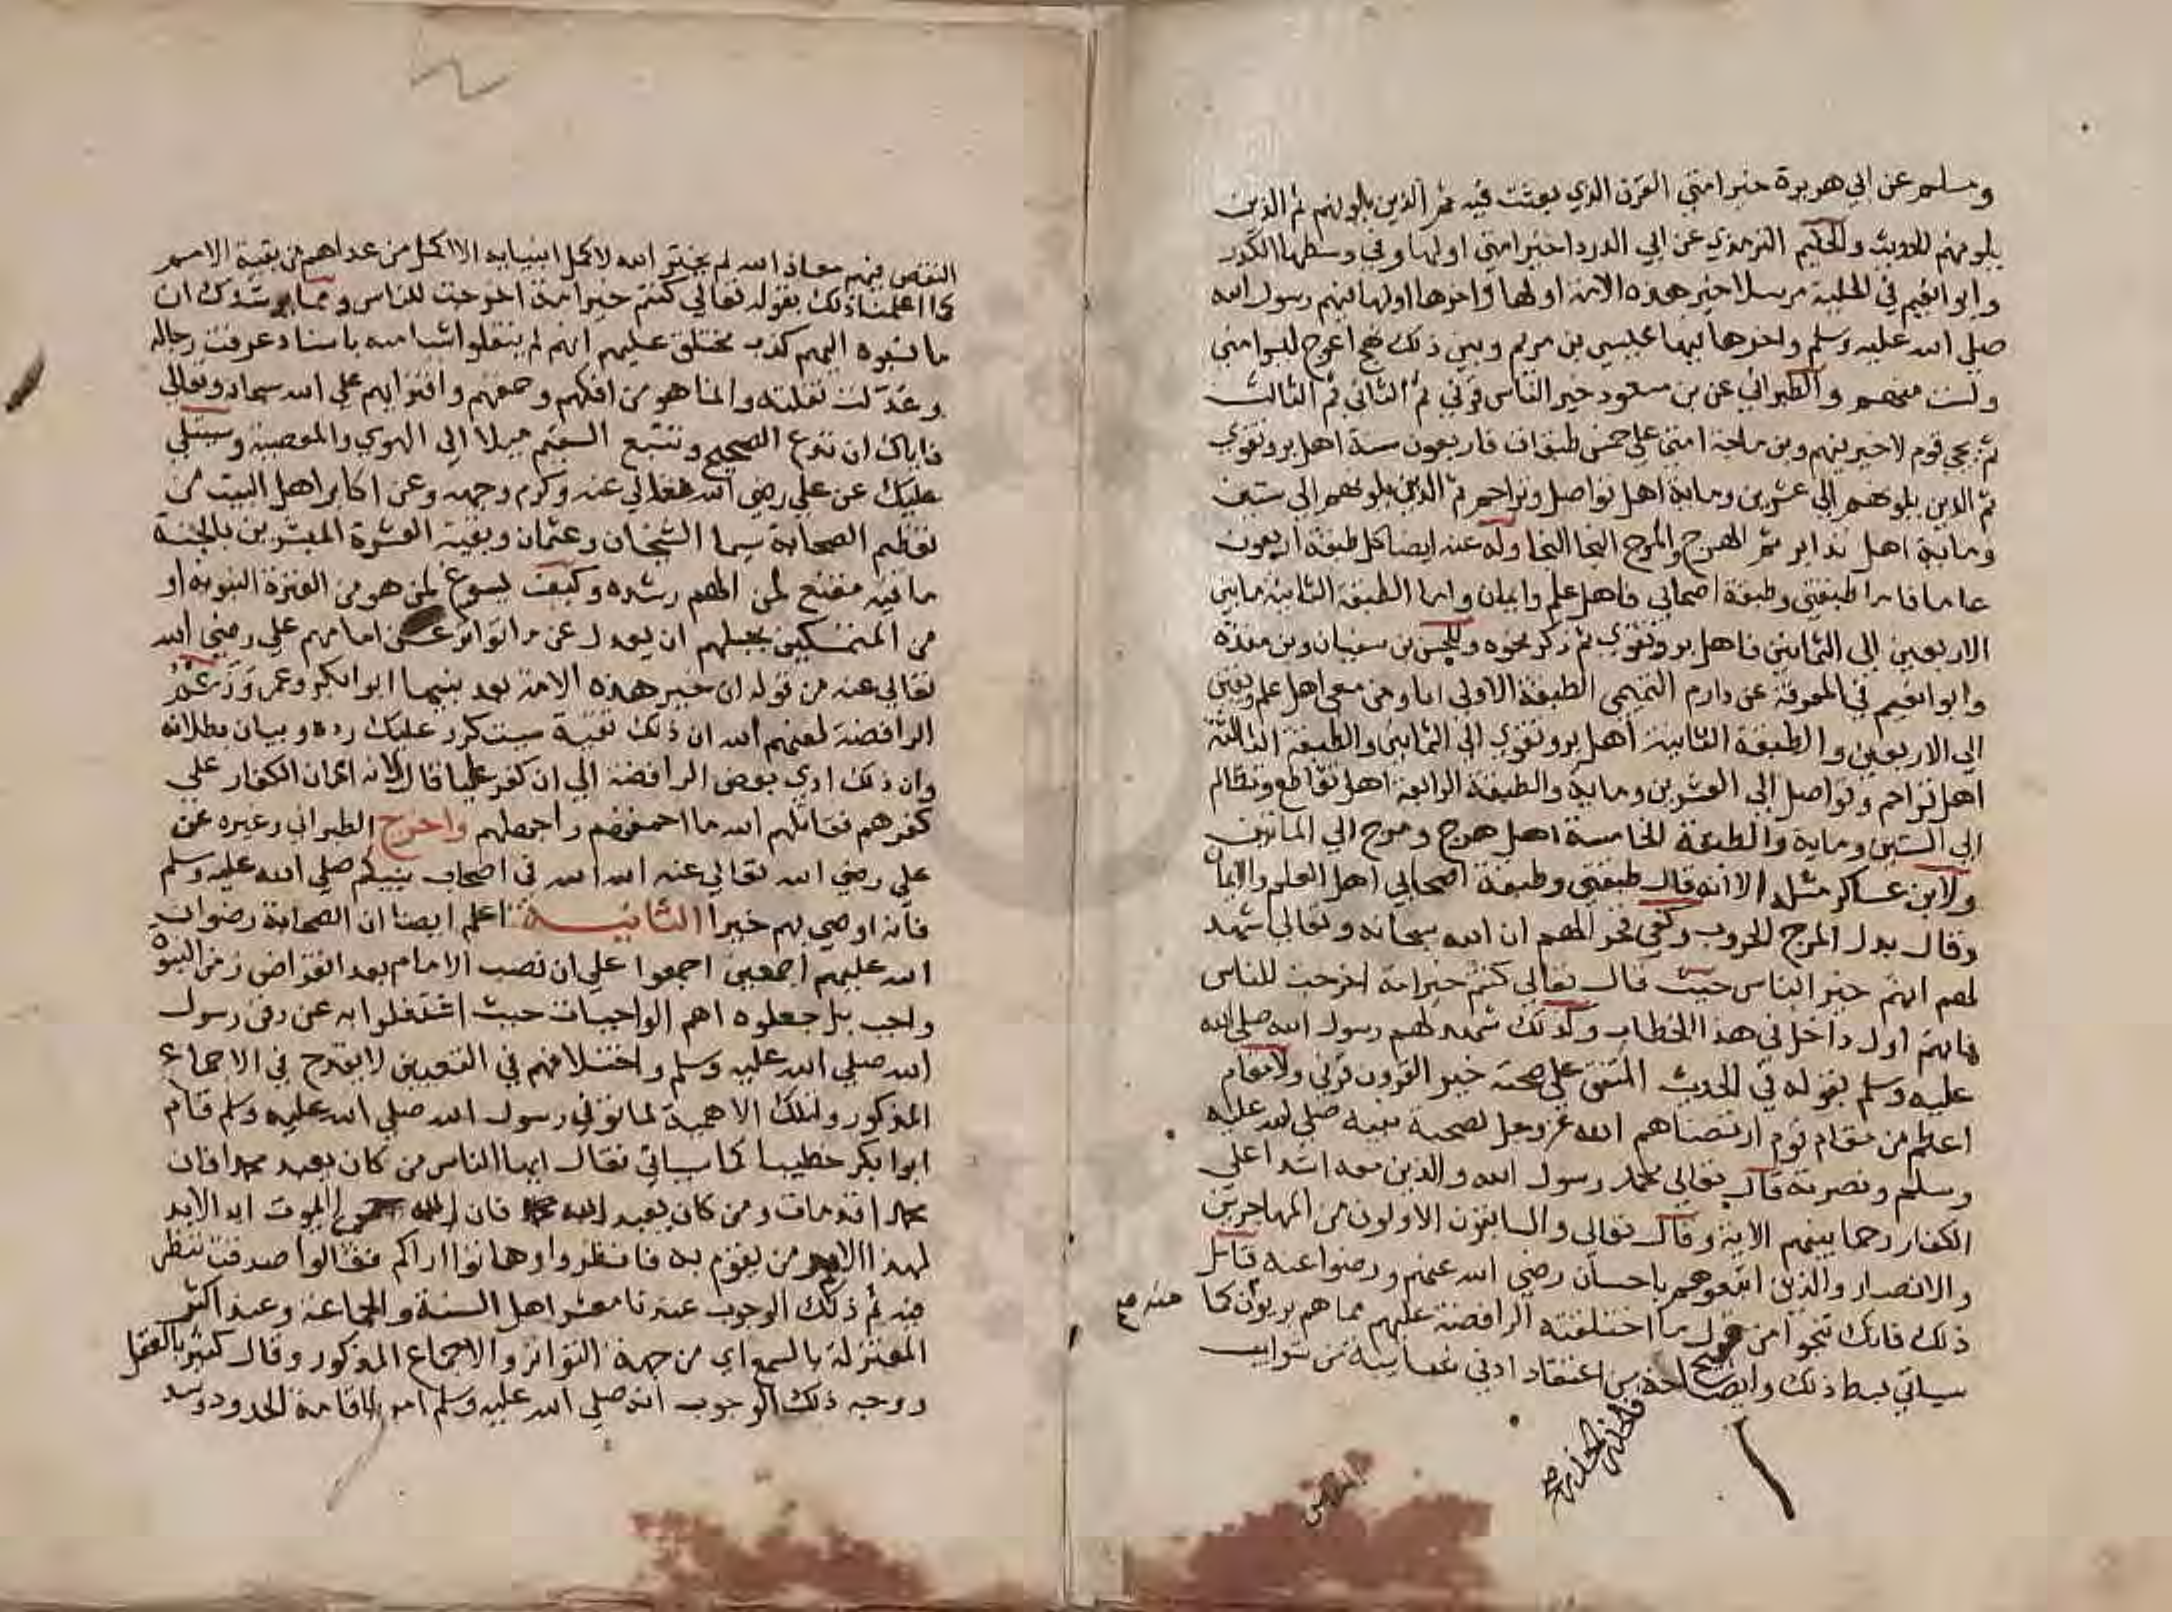 ومسلم عن ابي هريرة خير امتي القرن الذي بعثت فيه ثم الذين يلونهم ثم الذين
يلونهم الحديث والحكيم الترمذي عن ابي الدردا خير امتي اولها وفي وسطها الكدر
وابو انعيم في الحلية مرسلا خير هذه الامة اولها واخرها اولها فيهم رسول الله
صلي الله عليه وسلم واخرها فيها عيسي بن مريم وبين ذلك اعوج ليسوا مني
ولست منهم والطبراني عن بن مسعود خير الناس قرني ثم الثاني ثم الثالث
ثم يجي قوم لا خير فيهم وبن ماجة امتي علي خمس طبقات فاربعون سنة اهل بر وتقوي
ثم الذين يلونهم الي عشرين وماية اهل تواصل وتراحم ثم الذين يلونهم الي ستين
وماية اهل تدابر ثم الهرج والمرج النجا النجا وله عنه ايضا كل طبقة اربعون
عاما فاما طبقتي وطبقة اصحابي فاهل علم وايمان واما الطبقة الثانية مابين
الاربعين الي الثمانين فاهل بر وتقوي ثم ذكر نحوه وللحسن بن سفيان وبن مندة
وابو انعيم في المعرفة عن دارم التميمي الطبقة الاولي انا ومن معي اهل علم ويقين
الي الاربعين والطبقة الثانية اهل بر وتقوي الي الثمانين والطبقة الثالثة
اهل تراحم وتواصل الي العشرين وماية والطبقة الرابعة اهل تقاطع وتظالم
الي الستين وماية والطبقة الخامسة اهل هرج ومرج الي الماتين
ولابن عساكر مثله الا انه قال طبقتي وطبقة اصحابي اهل العلم والايمان
وقال بدل المرج الحروب وكفي فخرا لهم ان الله سبحانه وتعالي شهد
لهم انهم خير الناس حيث قال تعالي كنتم خير امة اخرجت للناس
فانهم اول داخل في هذا الخطاب وكذلك شهد لهم رسول الله صلي الله
عليه وسلم بقوله في الحديث المتفق علي صحته خير القرون قرني ولا مقام
اعظم من مقام قوم ارتضاهم الله عز وجل لصحبة نبيه صلي الله عليه
وسلم ونصرته قال تعالي محمد رسول الله والذين معه اشدا علي
الكفار رحما بينهم الاية وقال تعالي والسابقون الاولون من المهاجرين
والانصار والذين اتبعوهم باحسان رضي الله عنهم ورضوا عنه فتامل
ذلك فانك تنجوا من ما اختلقته الرافضة عليهم مما هم بريون كما منه صح
سياتي بسط ذلك وايضاحه من اعتقاد ادني شايبة من شوايب
النقص فيهم معاذ الله لم يختر الله لاكمل انبيايه الا اكمل من عداهم من بقية الامم
كما اعلمنا ذلك بقوله تعالي كنتم خير امة اخرجت للناس ومما يرشدك ان
ما نسبوه اليهم كذب مختلق عليهم انهم لم ينقلوا شيا منه باسناد عرفت رجاله
وعدلت نقلته وانما هو من افكهم وحمقهم وافترايهم علي الله سبحانه وتعالي
فاياك ان تدع الصحيح وتتبع السقيم ميلا الي الهوي والعصبية وسيتلي
عليك عن علي رضي الله تعالي عنه وكرم وجهه وعن اكابر اهل البيت من
تعظيم الصحابة سيما الشيخان وعثمان وبقية العشرة المبشرين بالجنة
ما فيه مقنع لمن الهم رشده وكيف يسوغ لمن هو من العترة النبوية او
من المتمسكين بحبلهم ان يعدل عن ما تواتر عن امامهم علي رضي الله
تعالي عنه من قوله ان خير هذه الامة بعد نبيها ابوا بكر وعمر وزعم
الرافضة لعنهم الله ان ذلك تقية سيتكرر عليك رده وبيان بطلانه
وان ذلك ادي بعض الرافضة الي ان كفر عليا قال لانه اعان الكفار علي
كفرهم فقاتلهم الله ما احمقهم واجهلهم واخرج الطبراني وغيره عن
علي رضي الله تعالي عنه الله الله في اصحاب نبيكم صلي الله عليه وسلم
فانه اوصي بهم خيرا الثانية اعلم ايضا ان الصحابة رضوان
الله عليهم اجمعين اجمعوا علي ان نصب الامام بعد انقراض زمن النبوة
واجب بل جعلوه اهم الواجبات حيث اشتغلوا به عن دفن رسول
الله صلي الله عليه وسلم واختلافهم في التعيين لا يقدح في الاجماع
المذكور ولتلك الاهمية لما توفي رسول الله صلي الله عليه وسلم قام
ابوا بكر خطيبا كما سياتي فقال ايها الناس من كان يعبد محمدا فان
محمدا قد مات ومن كان يعبد الله فان الله الموت ابد الابد
لهذا الامر من يقوم به فانظروا وهاتوا اراكم فقالوا صدقت ننظر
فيه ثم ذلك الوجوب عندنا معشر اهل السنة والجماعة وعند اكثر
المعتزلة بالسمع اي من جهة التواتر والاجماع المذكور وقال كثير بالعقل
ووجه ذلك الوجوب انه صلي الله عليه وسلم امر باقامة الحدود وسد